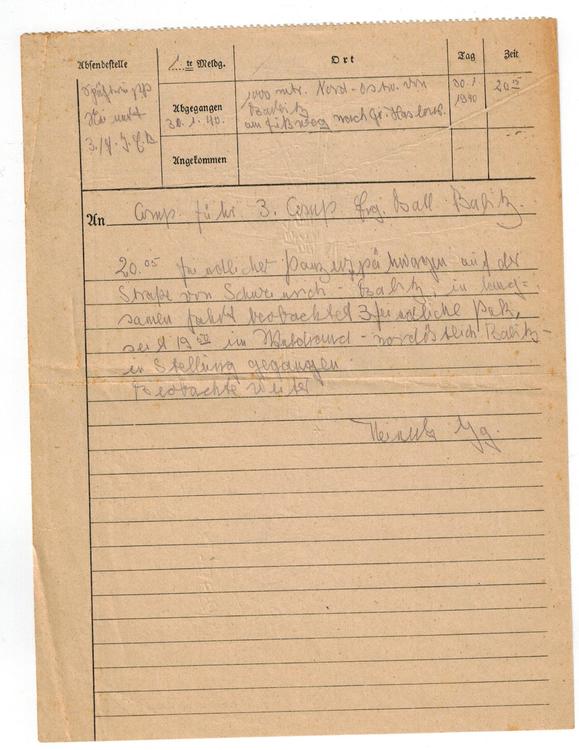 Absendestelle
1. te Meldg.
Ort
Tag
Zeit
Spähtrupp
3./
Abgegangen
30.1.40.
1000 mtr. Nord-Ostw. von
Babitz
am Fußweg nach Gr. Haslow.
30.1.
1940
20 15
Angekommen
An Comp. führ 3. Comp Erg. Batl. Babitz.
20.05 feindlicher Panzerspähwagen auf der
Straße von Schweinrich - Babitz, in lang-
samer fahrt beobachtet 3 feindliche Pak,
seit 19 im Waldrand - nordöstlich Babitz -
in Stellung gegangen.
Beobachte weiter